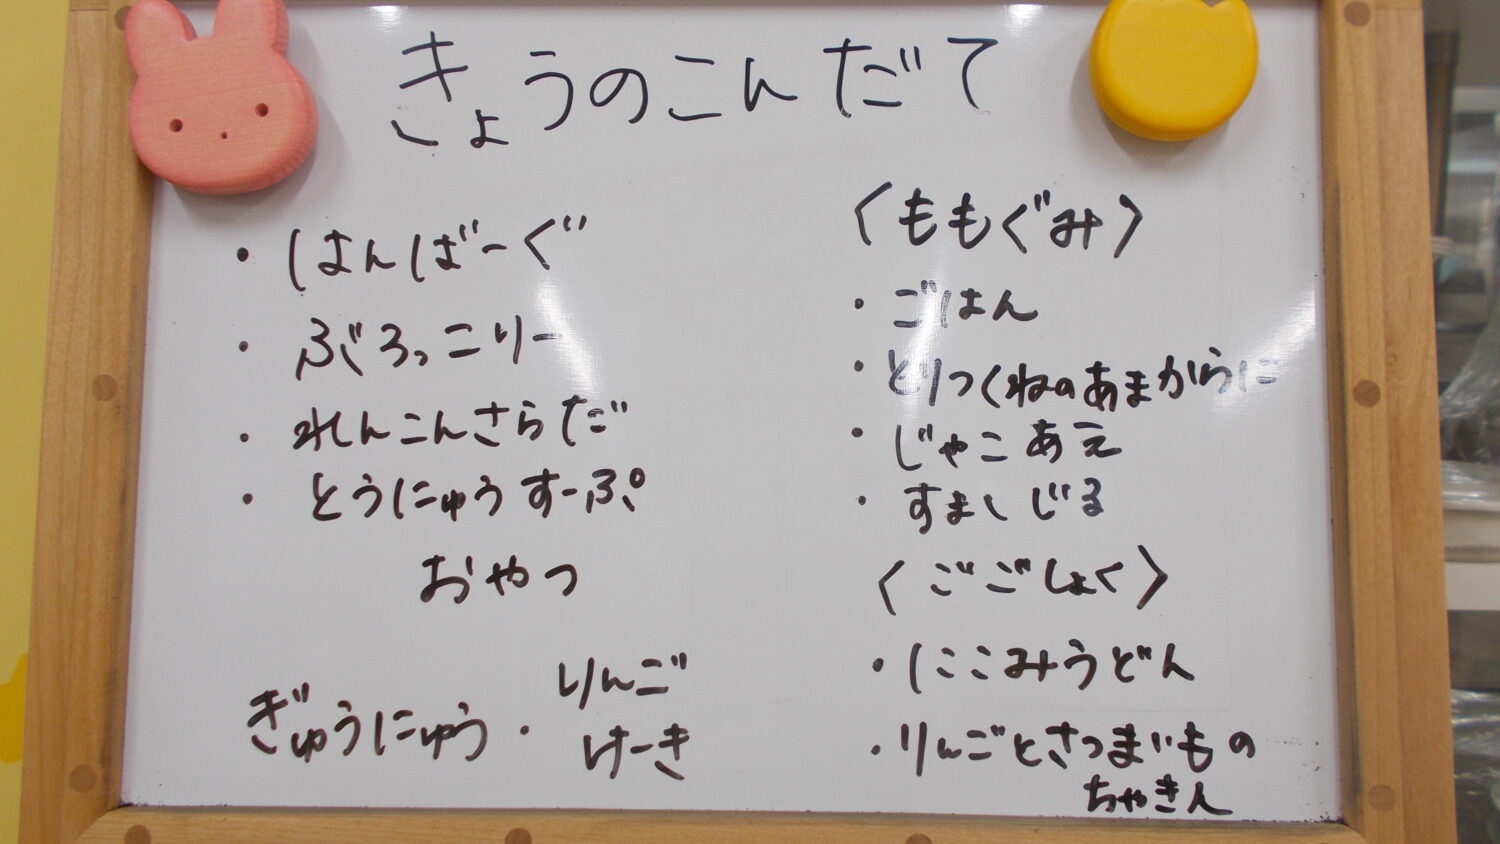 きょうのこんだて
・はんばーぐ
・ぶろっこりー
・れんこんさらだ
・とうにゅうすーぷ
おやつ
ぎゅうにゅう・りんご
けーき
〈ももぐみ〉
・ごはん
・とりつくねのあまからに
・じゃこあえ
・すましじる
〈ごごしょく〉
・にこみうどん
・りんごとさつまいもの
ちゃきん